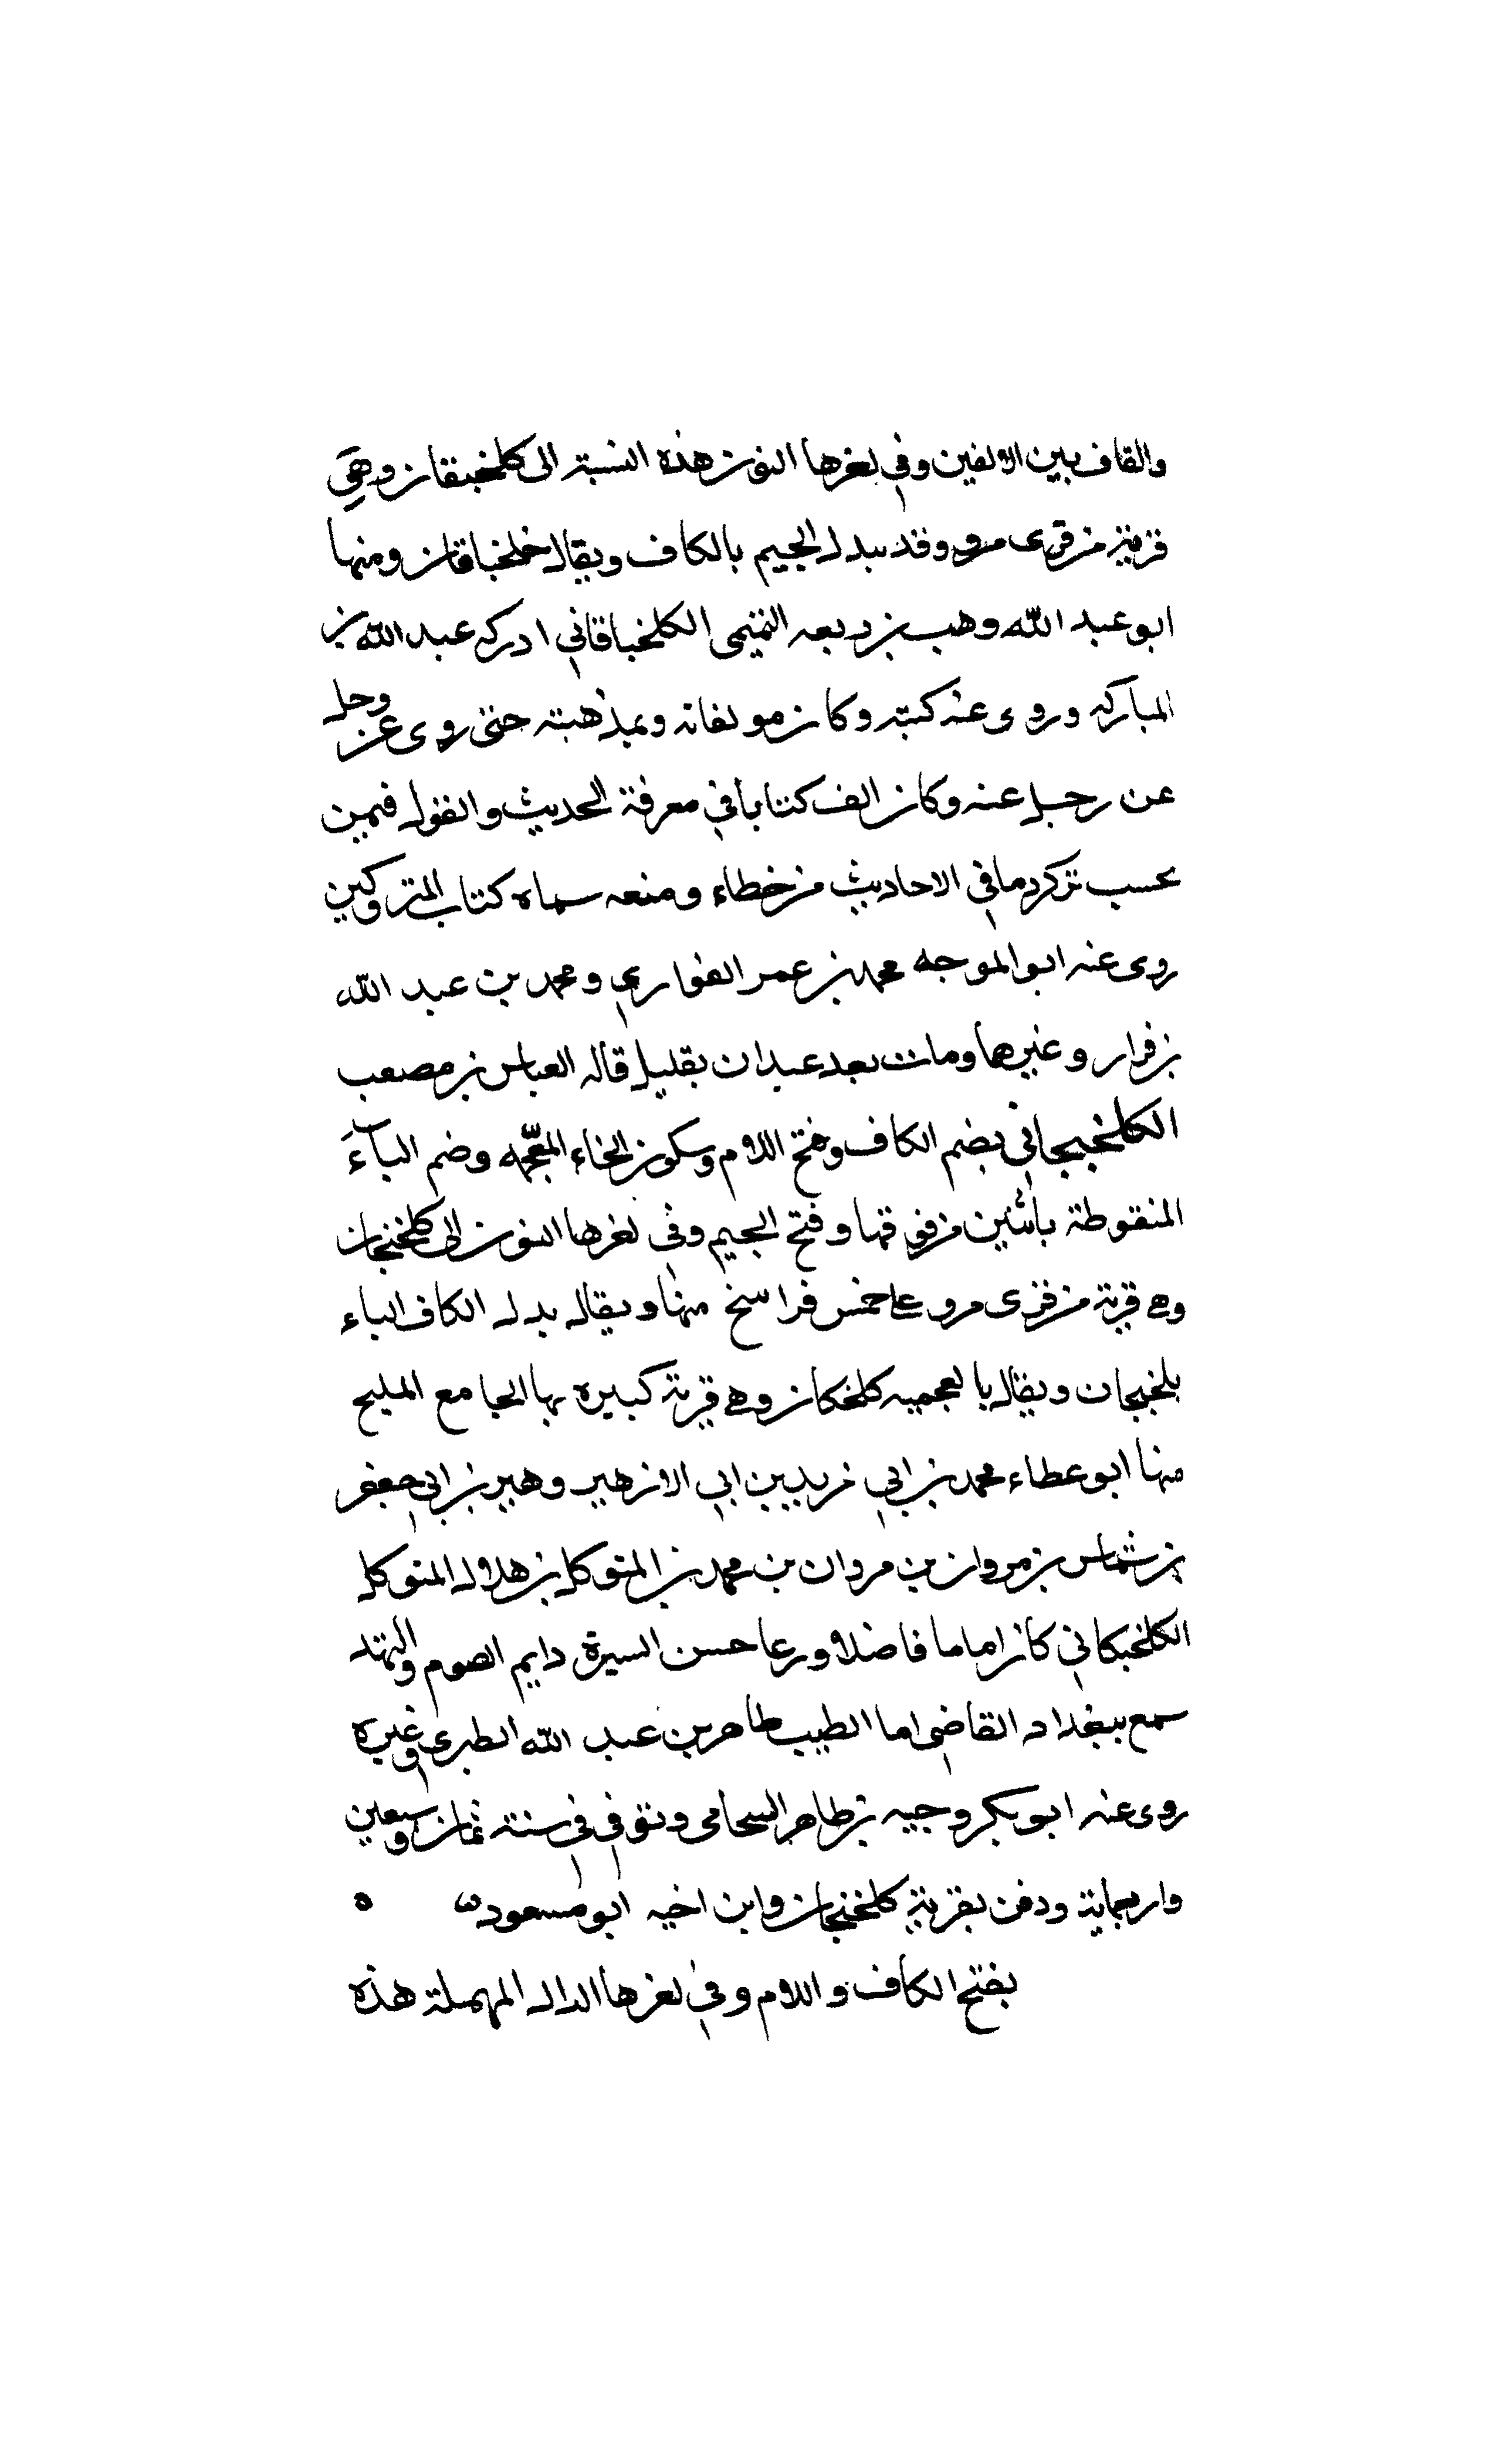 والقاف بين الالفين وفي اخرها النون هذه النسبة الى كلخبقان وهي
قرية من قرى مرو وقد يبدل الجيم بالكاف ويقال خلخباقان ومنها
ابو عبد الله وهب بن ربيعه التميمي الكلخباقاني ادرك عبد الله بن
المبارك وروى عنه كتبه وكان مولفاته وبمذهبته حتى روى عن رجل
عن رجل عنه وكان الف كتابا في معرفة الحديث والقول فيمن
بحسب تركه ما في الاحاديث من خطاء ومنعه سماه كتاب المتروكين
روى عنه ابو الموجه محمد بن عمر الفزاري ومحمد بن عبد الله
بن قزار وغيرها ومات بعد عبدان بقليل قاله العباس بن مصعب
الكلخبجاني بضم الكاف وفتح اللام وسكون الخاء المعجمه وضم الباء
المنقوطة باثنين من فوقها وفتح الجيم وفي اخرها النون الى كلخنجان
وهي قرية من قرى مرو على خمس فراسخ منها ويقال بدل الكاف الباء
بلخبجان ويقال بالعجميه كلخكان وهي قرية كبيره بها الجامع المليح
منها ابو عطاء محمد بن ابي يزيد بن ابي الازهير وهير بن ابي جعفر
بن شماس بن مروان بن مردان بن محمد بن المتوكل بن هلال المتوكل
الكلخبكاني كان اماما فاضلا ورعا حسن السيرة دايم الصوم والتهجد
سمع ببغداد القاضي اما الطيب طاهر بن عبد الله الطبري وغيره
روى عنه ابو بكر وجيه بن طاهر السحامي وتوفي في سنة ثمان وسبعين
واربعماية ودفن بقرية كلخنجان وابن اخيه ابو مسعود ه
بفتح الكاف واللام وفي اخرها الدال المهملة هذه